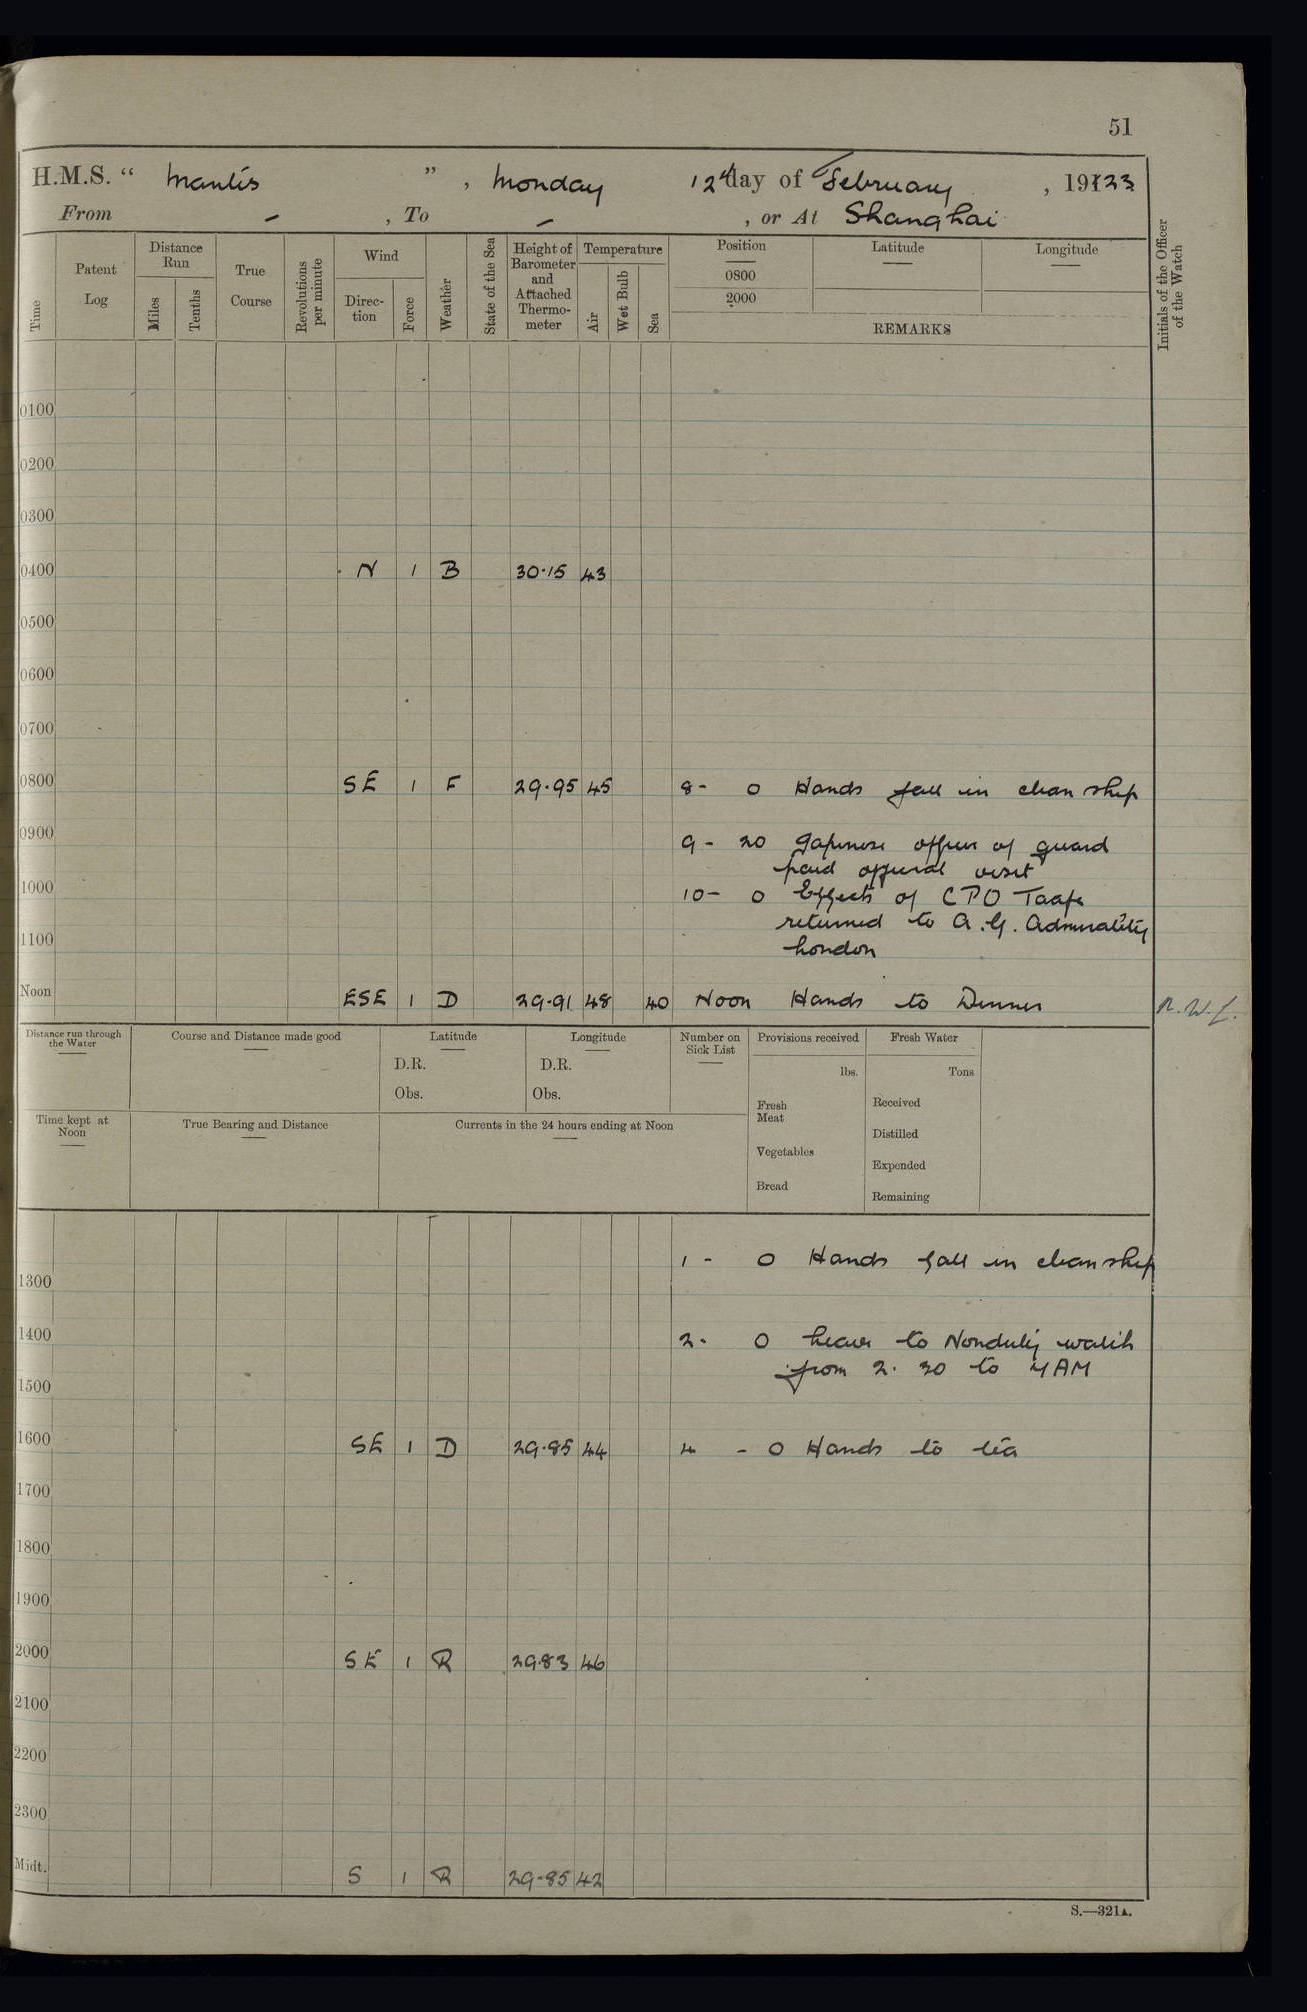 51
H.M.S. “ Mantis ” , Monday 12th day of February , 1923
From - , To - , or At Shanghai
Time
Patent Log
Distance Run
Miles
Tenths
True Course
Revolutions per minute
Wind
Direc-tion
Force
Weather
State of the Sea
Height of Barometer and Attached Thermo-meter
Temperature
Air
Wet Bulb
Sea
Position
Latitude
Longitude
0800
2000
REMARKS
Initials of the Officer of the Watch
0100
0200
0300
0400 N 1 B 30.15 43
0500
0600
0700
0800 SE 1 F 29.95 45 8- 0 Hands fall in clean ship
0900 9- 20 Japenese officer of guard
paid official visit
1000 10- 0 Effects of CPO Taafe
returned to A.G. Admirality
1100 London
Noon ESE 1 D 29.91 48 40 Noon Hands to Dinner
Distance run through the Water
Course and Distance made good
Latitude
D.R.
Obs.
Longitude
D.R.
Obs.
Number on Sick List
Provisions received
lbs.
Fresh Meat
Vegetables
Bread
Fresh Water
Tons
Received
Distilled
Expended
Remaining
Time kept at Noon
True Bearing and Distance
Currents in the 24 hours ending at Noon
1 - 0 Hands fall in clean ship
1300
1400 2. 0 Leave to Nonduty watch
from 2. 30 to 7 AM
1500
1600 SE 1 D 29.85 44 4 - 0 Hands to tea
1700
1800
1900
2000 SE 1 R 29.83 46
2100
2200
2300
Midt. S 1 R 29.85 42
S.—321A.